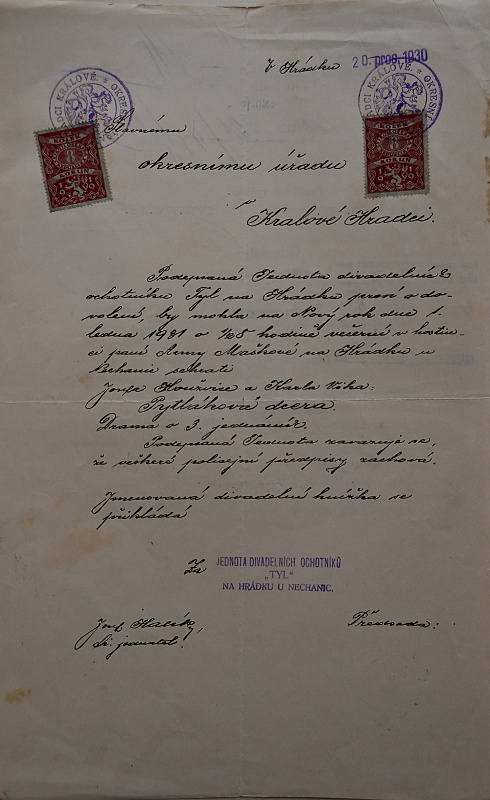 V Hrádku 20. pros. 1930
KRÁLOVÉ. * OKRESNÍ
KRÁLOVÉ. * OKRESNÍ
8
KORUN
8
KORUN
Slavnému
okresnímu úřadu
v
Králové Hradci.
Podepsaná Jednota divadelních
ochotníku Tyl na Hrádku prosí o do-
volení, by mohla na Nový rok dne 1.
ledna 1931 o ½8 hodině večerní v hostin-
ci paní Anny Maškové na Hrádku u
Nechanic sehrati
Josefa Houžvice a Karla Vika:
Pytlákova dcera.
Drama o 3. jednáních.
Podepsaná Jednota zavazuje se,
že veškeré policejní předpisy zachová.
Jmenovaná divadelní knížka se
přikládá
Za JEDNOTA DIVADELNÍCH OCHOTNÍKŮ
„TYL"
NA HRÁDKU U NECHANIC.
Josef
t. jednatel.
Předseda: